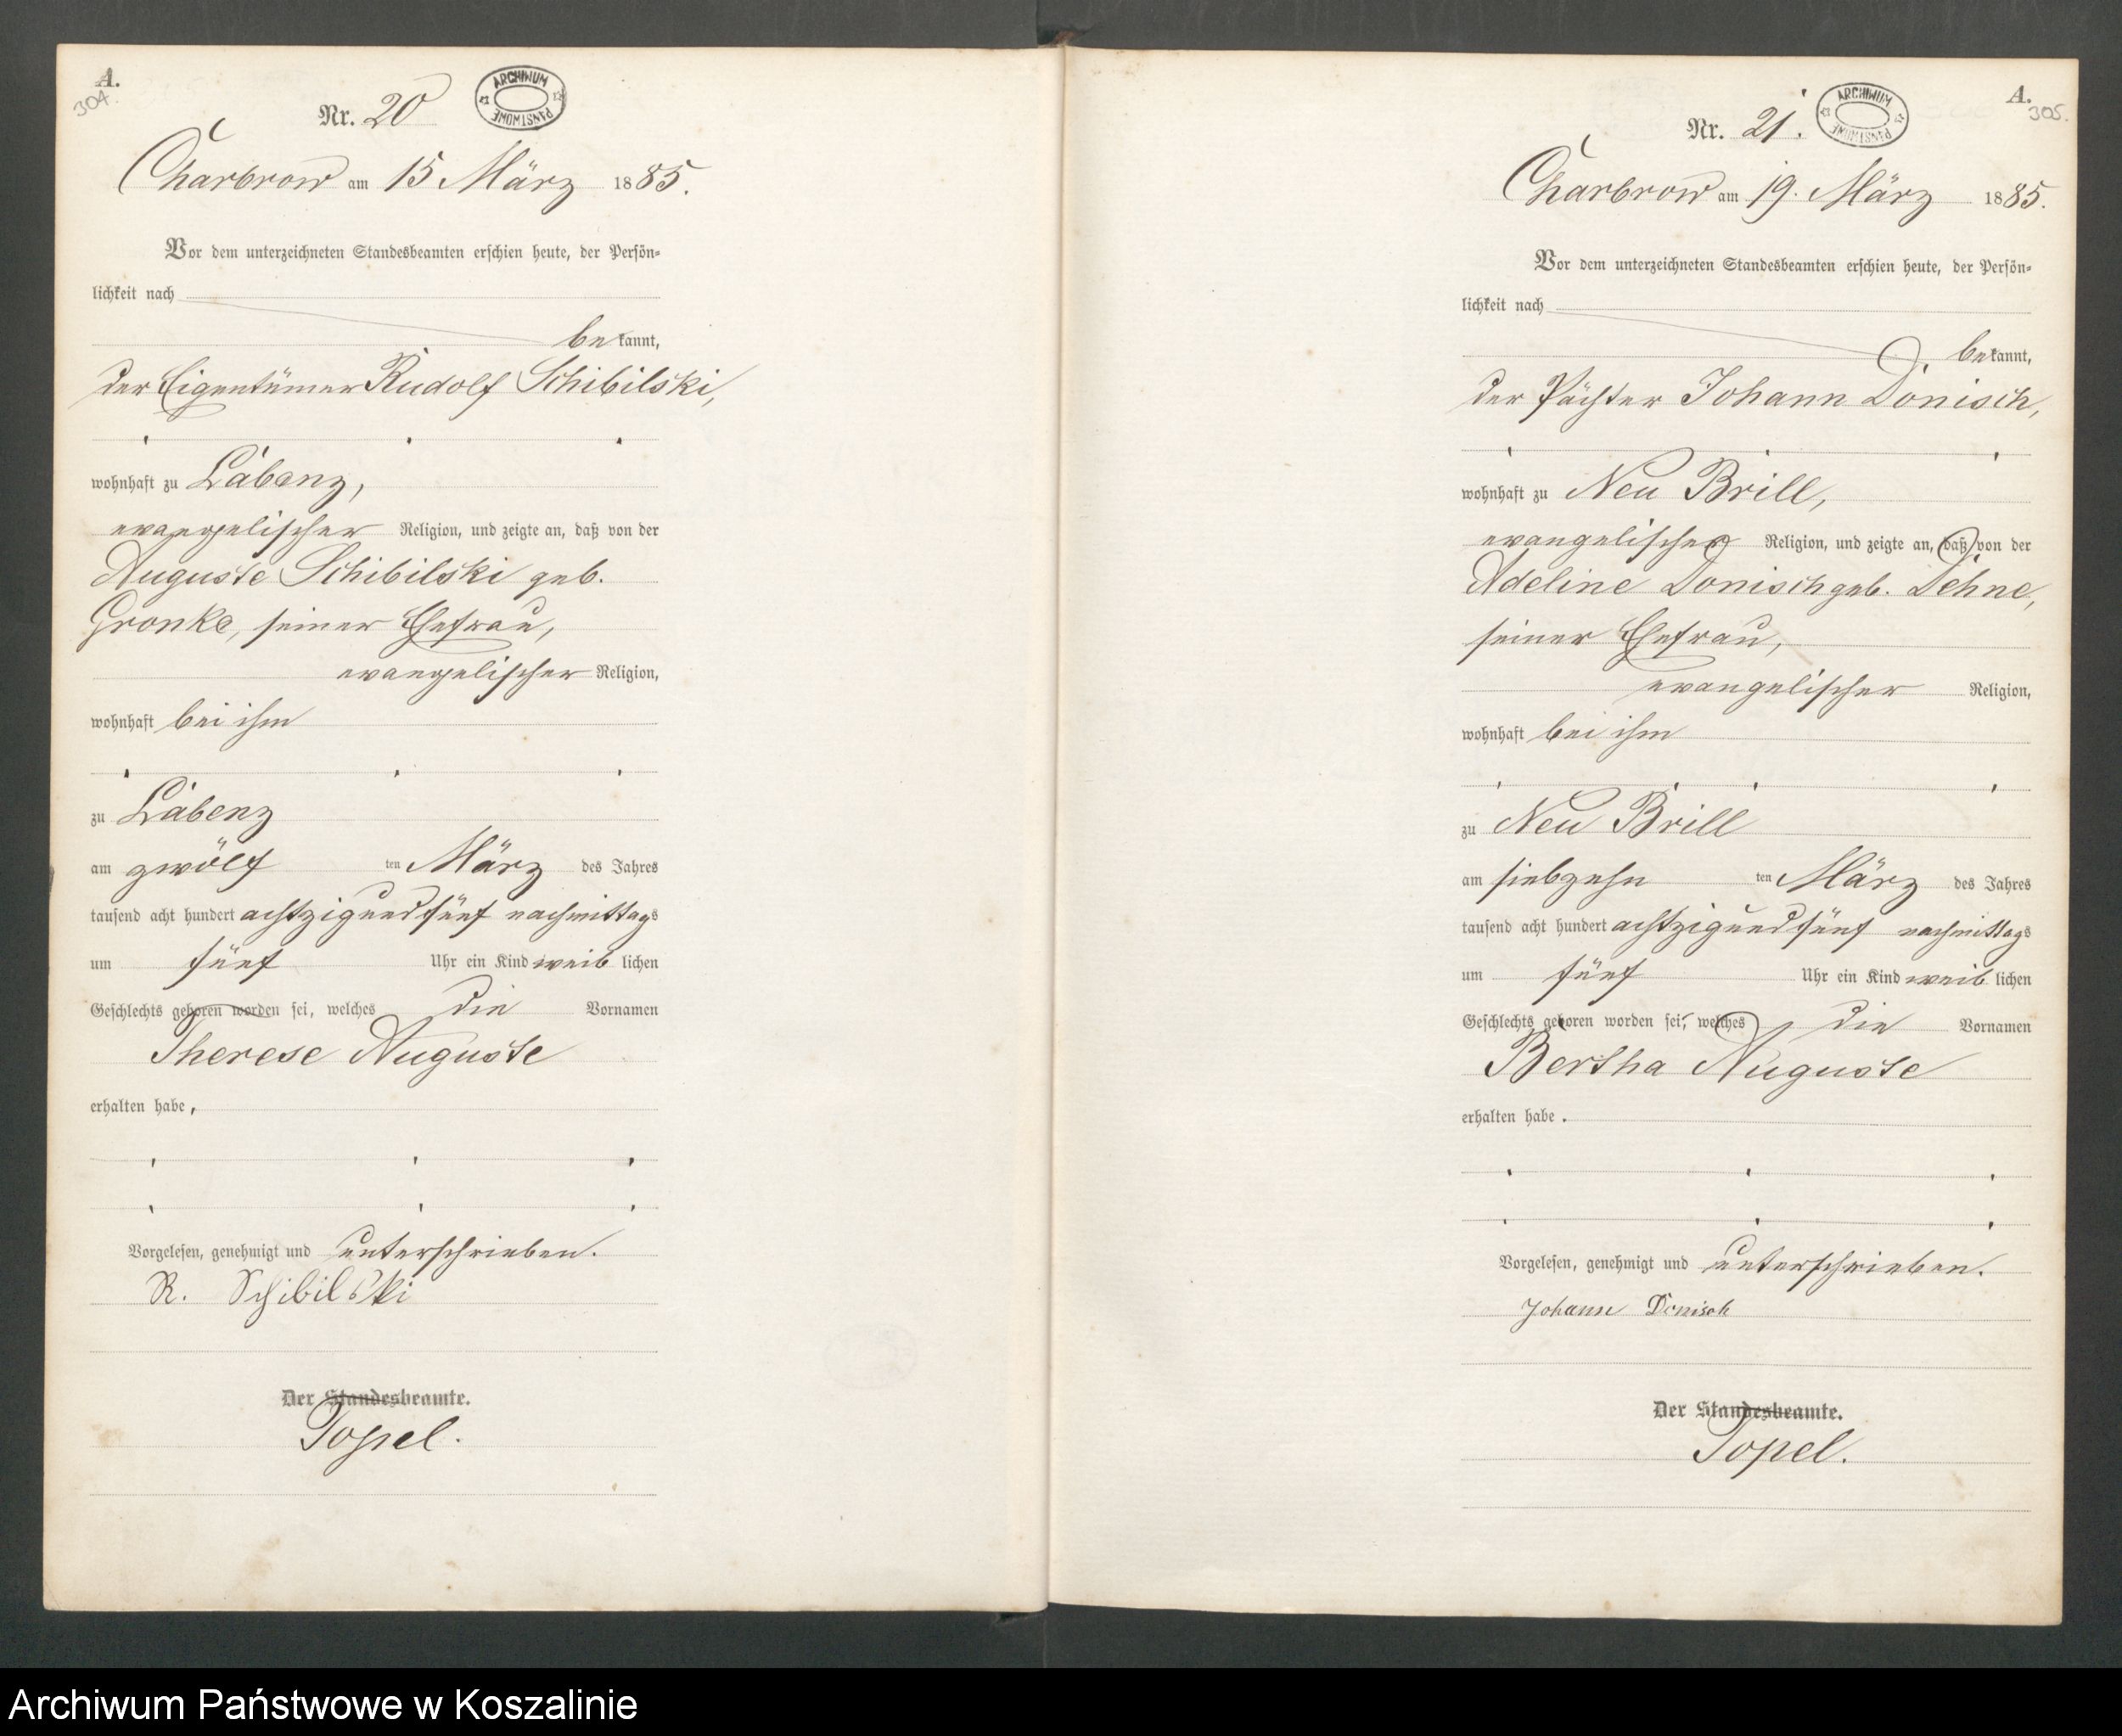 A.
304.
Nr. 20
ARCHIWUM PAŃSTWOWE
Charbrow am 15 März 1885.
Vor dem unterzeichneten Standesbeamten erschien heute, der Persön-
lichkeit nach
bekannt,
der Eigentümer Rudolf Schibilski,
wohnhaft zu Labenz,
evangelischer Religion, und zeigte an, daß von der
Auguste Schibilski geb.
Gronke, seiner Ehefrau,
evangelischer Religion,
wohnhaft bei ihm
zu Labenz
am zwölf ten März des Jahres
tausend acht hundert achtzig und fünf nachmittags
um fünf Uhr ein Kind weiblichen
Geschlechts geboren worden sei, welches die Vornamen
Therese Auguste
erhalten habe,
Vorgelesen, genehmigt und unterschrieben.
R. Schibilski
Der Standesbeamte.
Topel.
A.
305.
Nr. 21.
ARCHIWUM PAŃSTWOWE
Charbrow am 19. März 1885.
Vor dem unterzeichneten Standesbeamten erschien heute, der Persön-
lichkeit nach
bekannt,
der Pächter Johann Donisch,
wohnhaft zu Neu Brill,
evangelischer Religion, und zeigte an, daß von der
Adeline Donisch geb. Dehne,
seiner Ehefrau,
evangelischer Religion,
wohnhaft bei ihm
zu Neu Brill
am siebzehn ten März des Jahres
tausend acht hundert achtzig und fünf nachmittags
um fünf Uhr ein Kind weiblichen
Geschlechts geboren worden sei, welches die Vornamen
Bertha Auguste
erhalten habe.
Vorgelesen, genehmigt und unterschrieben.
Johann Donisch
Der Standesbeamte.
Topel.
Archiwum Państwowe w Koszalinie